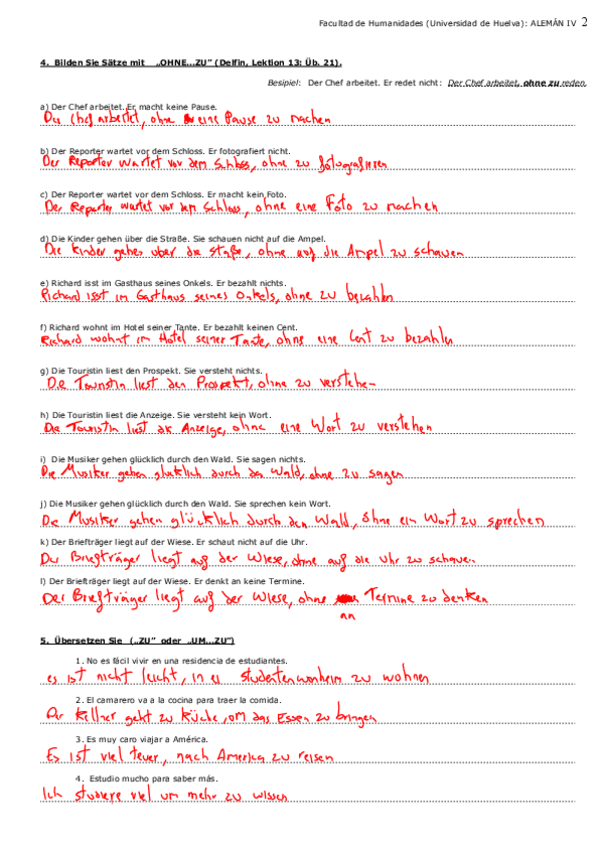 Facultad de Humanidades (Universidad de Huelva): ALEMÁN IV 2
4. Bilden Sie Sätze mit „OHNE...ZU" (Delfin, Lektion 13: Üb. 21).
Besipiel: Der Chef arbeitet. Er redet nicht: Der Chef arbeitet, ohne zu reden.
a) Der Chef arbeitet. Er macht keine Pause.
Der Chef arbeitet, ohne eine Pause zu machen
b) Der Reporter wartet vor dem Schloss. Er fotografiert nicht.
Der Reporter wartet vor dem Schloss, ohne zu fotografieren
c) Der Reporter wartet vor dem Schloss. Er macht kein Foto.
Der Reporter wartet vor dem Schloss, ohne eine Foto zu machen
d) Die Kinder gehen über die Straße. Sie schauen nicht auf die Ampel.
Die Kinder gehes über die Straße, ohne auf die Ampel zu schauen
e) Richard isst im Gasthaus seines Onkels. Er bezahlt nichts.
Richard isst im Gasthaus seines Onkels, ohne zu bezahlen
f) Richard wohnt im Hotel seiner Tante. Er bezahlt keinen Cent.
Richard wohnt im Hotel seiner Tante, ohne eine Cent zu bezahlen
g) Die Touristin liest den Prospekt. Sie versteht nichts.
Die Touristin liest den Prospekt, ohne zu verstehen
h) Die Touristin liest die Anzeige. Sie versteht kein Wort.
Die Touristin liest die Anzeige, ohne eine Wort zu verstehen
i) Die Musiker gehen glücklich durch den Wald. Sie sagen nichts.
Die Musiker gehen glücklich durch den Wald, ohne zu sagen
j) Die Musiker gehen glücklich durch den Wald. Sie sprechen kein Wort.
Die Musiker gehen glücklich durch den Wald, ohne ein Wort zu sprechen
k) Der Briefträger liegt auf der Wiese. Er schaut nicht auf die Uhr.
Der Briefträger liegt auf der Wiese, ohne auf die Uhr zu schauen
l) Der Briefträger liegt auf der Wiese. Er denkt an keine Termine.
Der Briefträger liegt auf der Wiese, ohne Termine zu denken
an
5. Übersetzen Sie („ZU" oder „UM...ZU")
1. No es fácil vivir en una residencia de estudiantes.
es ist nicht leicht, in es studentenwonheim zu wohnen
2. El camarero va a la cocina para traer la comida.
Der Killner geht zu Küche, om das Essen zu bringen
3. Es muy caro viajar a América.
Es ist viel teuer, nach America zu reisen
4. Estudio mucho para saber más.
Ich studiere viel um mehr zu wissen